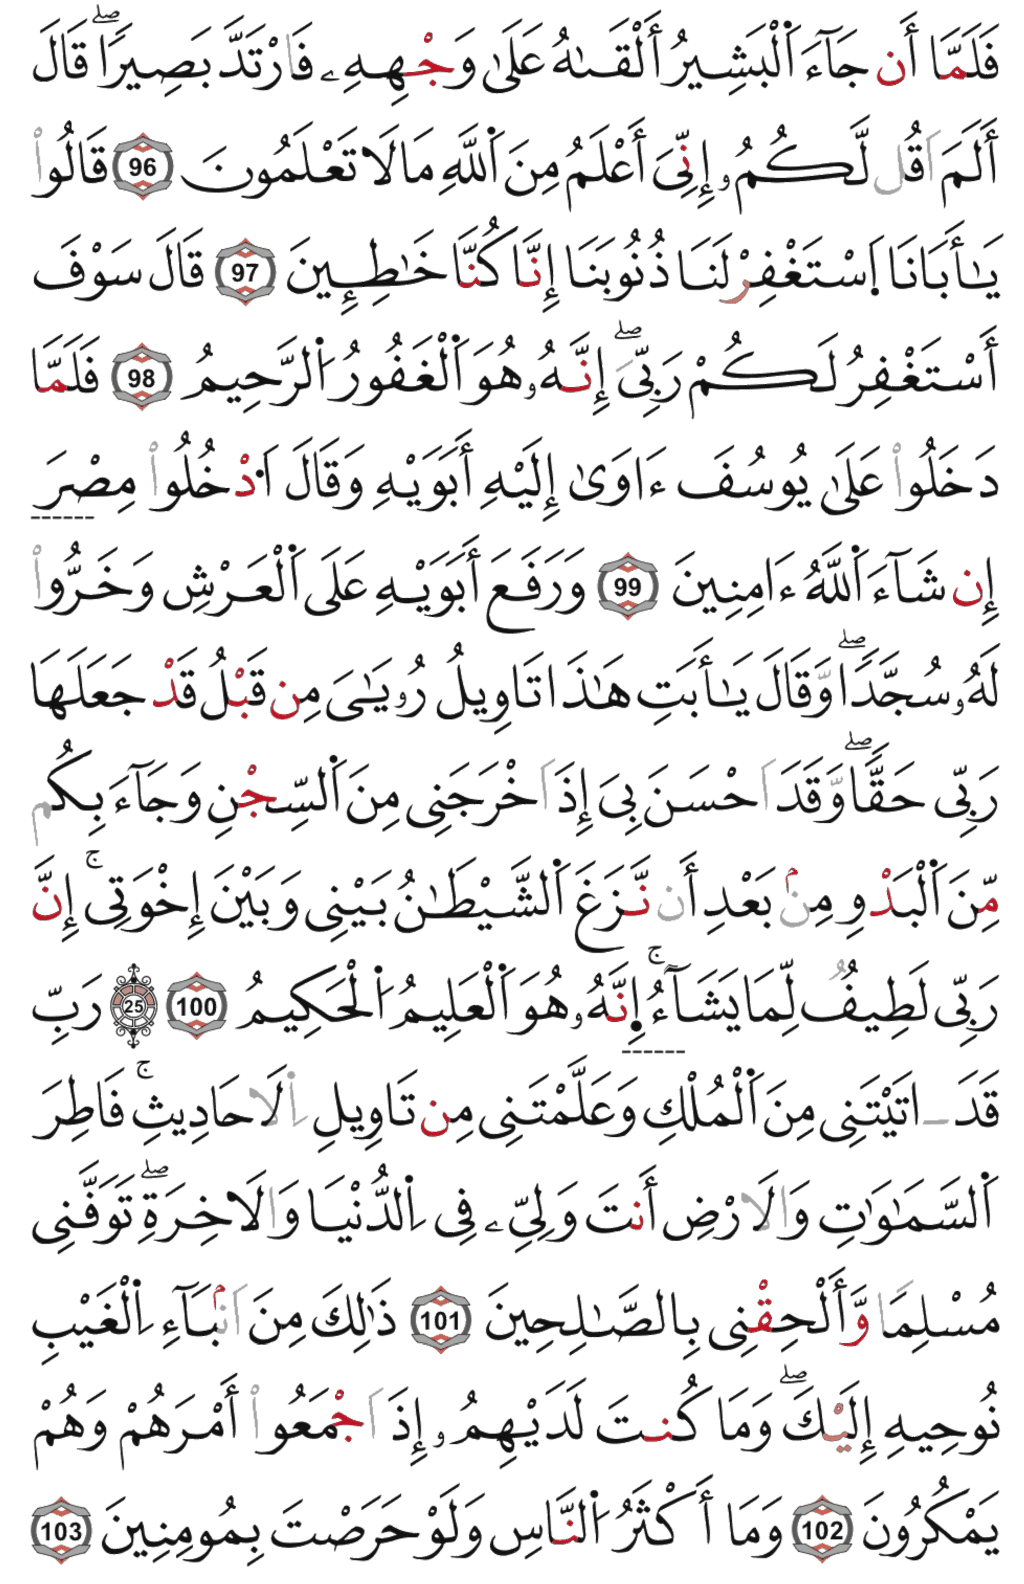 فَلَمَّا أَن جَآءَ اَ۬لْبَشِيرُ أَلْقَىٰهُ عَلَىٰ وَجْهِهِۦ فَارْتَدَّ بَصِيراٗۖ قَالَ
أَلَمَ اَقُل لَّكُمُۥٓ إِنِّيَ أَعْلَمُ مِنَ اَ۬للَّهِ مَا لَا تَعْلَمُونَ 96 قَالُواْ
يَٰٓأَبَانَا اَ۪سْتَغْفِرْ لَنَا ذُنُوبَنَا إِنَّا كُنَّا خَٰطِـِٕينَ 97 قَالَ سَوْفَ
أَسْتَغْفِرُ لَكُمْ رَبِّيَۖ إِنَّهُۥ هُوَ اَ۬لْغَفُورُ اُ۬لرَّحِيمُ 98 فَلَمَّا
دَخَلُواْ عَلَىٰ يُوسُفَ ءَاوَىٰ إِلَيْهِ أَبَوَيْهِ وَقَالَ اَ۟دْخُلُواْ مِصْرَ
إِن شَآءَ اَ۬للَّهُ ءَامِنِينَ 99 وَرَفَعَ أَبَوَيْهِ عَلَى اَ۬لْعَرْشِ وَخَرُّواْ
لَهُۥ سُجَّداٗۖ وَقَالَ يَٰٓأَبَتِ هَٰذَا تَاوِيلُ رُءْيَٰيَ مِن قَبْلُ قَدْ جَعَلَهَا
رَبِّي حَقّاٗۖ وَقَدَ اَحْسَنَ بِيَ إِذَ اَخْرَجَنِي مِنَ اَ۬لسِّجْنِ وَجَآءَ بِكُم
مِّنَ اَ۬لْبَدْوِ مِنۢ بَعْدِ أَن نَّزَغَ اَ۬لشَّيْطَٰنُ بَيْنِي وَبَيْنَ إِخْوَتِيَۚ إِنَّ
رَبِّي لَطِيفٞ لِّمَا يَشَآءُۚ اِ۪نَّهُۥ هُوَ اَ۬لْعَلِيمُ اُ۬لْحَكِيمُ 100 25 رَبِّ
قَدَ ـ اتَيْتَنِي مِنَ اَ۬لْمُلْكِ وَعَلَّمْتَنِي مِن تَاوِيلِ اِ۬لَاحَادِيثِۚ فَاطِرَ
اَ۬لسَّمَٰوَٰتِ وَالَارْضِ أَنتَ وَلِيِّۦ فِي اِ۬لدُّنْيَا وَالَاخِرَةِۖ تَوَفَّنِي
مُسْلِماٗ وَأَلْحِقْنِي بِالصَّٰلِحِينَ 101 ذَٰلِكَ مِنَ اَنۢبَآءِ اِ۬لْغَيْبِ
نُوحِيهِ إِلَيْكَۖ وَمَا كُنتَ لَدَيْهِمُۥٓ إِذَ اَجْمَعُواْ أَمْرَهُمْ وَهُمْ
يَمْكُرُونَ 102 وَمَا أَكْثَرُ اُ۬لنَّاسِ وَلَوْ حَرَصْتَ بِمُومِنِينَ 103